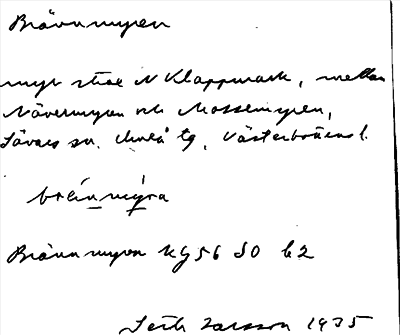 Brännmyren
myr strax N Klappmark, mellan
Nävermyran och Mossemyren,
Sävars sn. Umeå tg, Västerbottens l.
bräinmýra
Brännmyren Kg 56 SO b2
Seth Larsson 1935